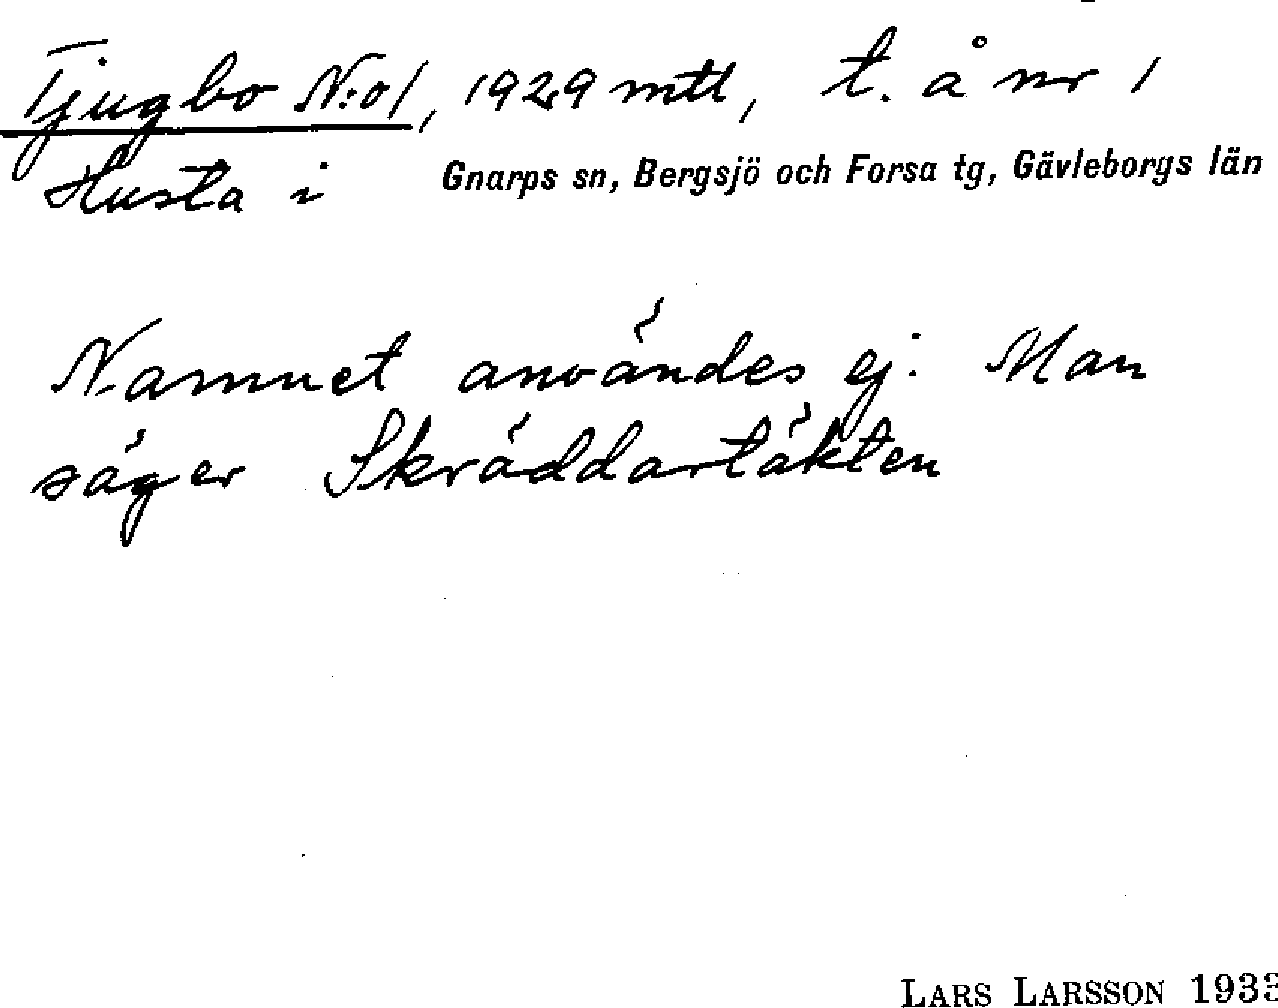 Tjugbo N:o 1, 1929 mtl, t. å nr 1
Husta i Gnarps sn, Bergsjö och Forsa tg, Gävleborgs län
Namnet användes ej. Man
säger Skräddartäkten
LARS LARSSON